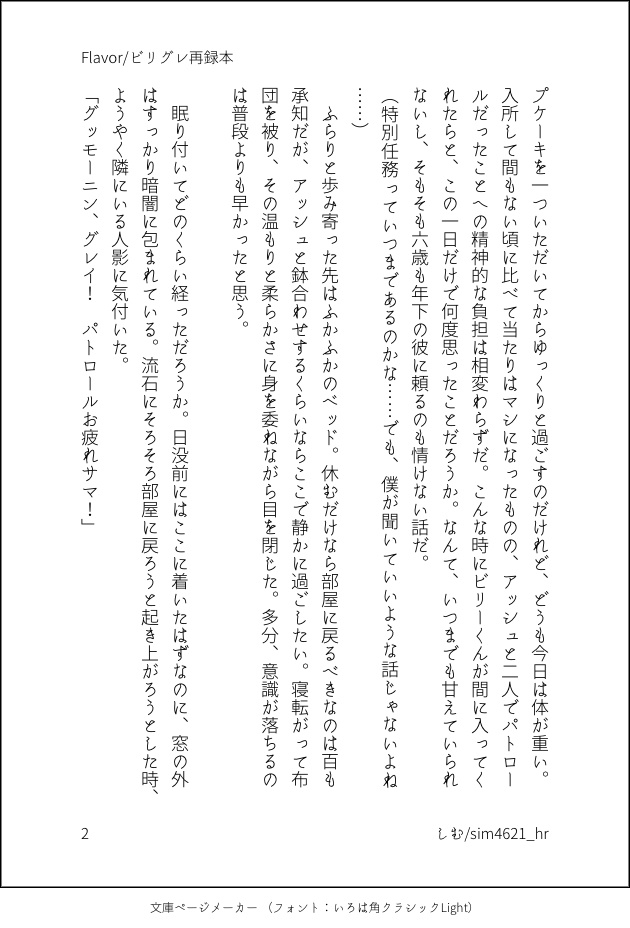 Flavor/ビリグレ再録本
プケーキを一ついただいてからゆっくりと過ごすのだけれど、どうも今日は体が重い。
入所して間もない頃に比べて当たりはマシになったものの、アッシュと二人でパトロー
ルだったことへの精神的な負担は相変わらずだ。こんな時にビリーくんが間に入ってく
れたらと、この一日だけで何度思ったことだろうか。なんて、いつまでも甘えていられ
ないし、そもそも六歳も年下の彼に頼るのも情けない話だ。
(特別任務っていつまであるのかな……でも、僕が聞いていいような話じゃないよね
……)
ふらりと歩み寄った先はふかふかのベッド。休むだけなら部屋に戻るべきなのは百も
承知だが、アッシュと鉢合わせするくらいならここで静かに過ごしたい。寝転がって布
団を被り、その温もりと柔らかさに身を委ねながら目を閉じた。多分、意識が落ちるの
は普段よりも早かったと思う。
眠り付いてどのくらい経っただろうか。日没前にはここに着いたはずなのに、窓の外
はすっかり暗闇に包まれている。流石にそろそろ部屋に戻ろうと起き上がろうとした時、
ようやく隣にいる人影に気付いた。
「グッモーニン、グレイ！　パトロールお疲れサマ！」
2
しむ/sim4621_hr
文庫ページメーカー （フォント：いろは角クラシックLight）